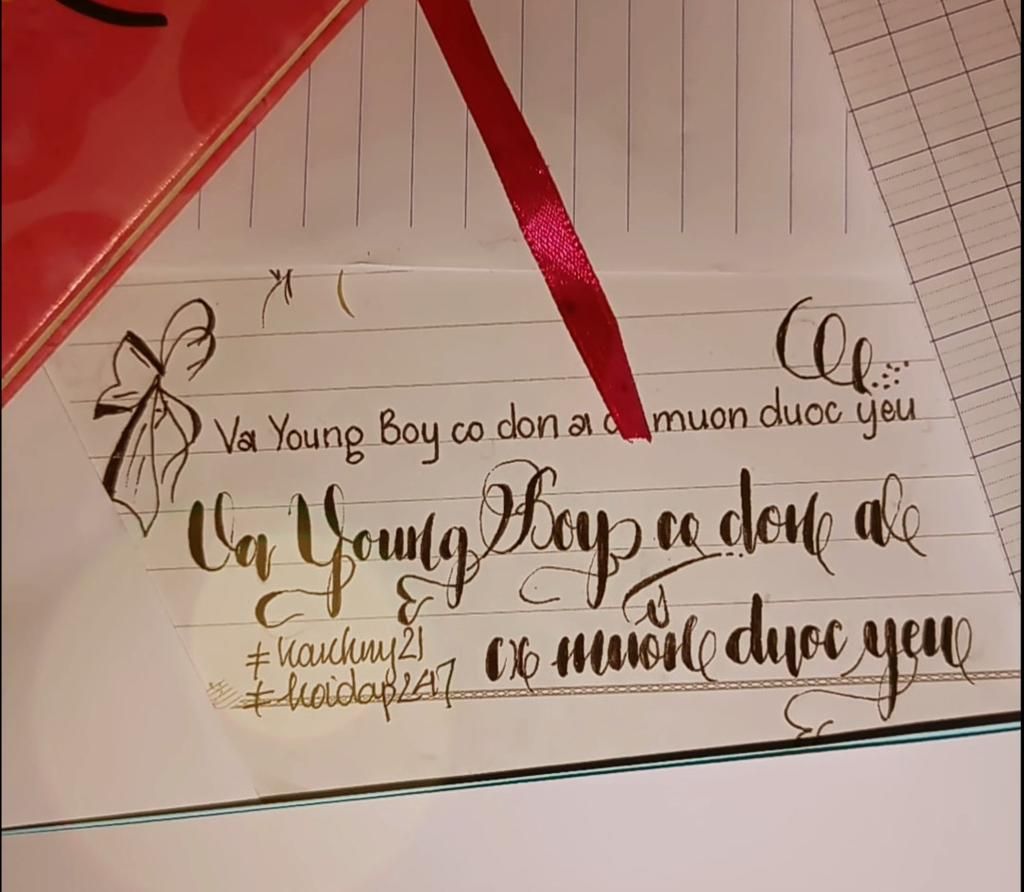 Va Young Boy co don ai muon duoc yeu
Va Young Boy co don ai
cx muon duoc yeu
#kauchny21
#hoidap247